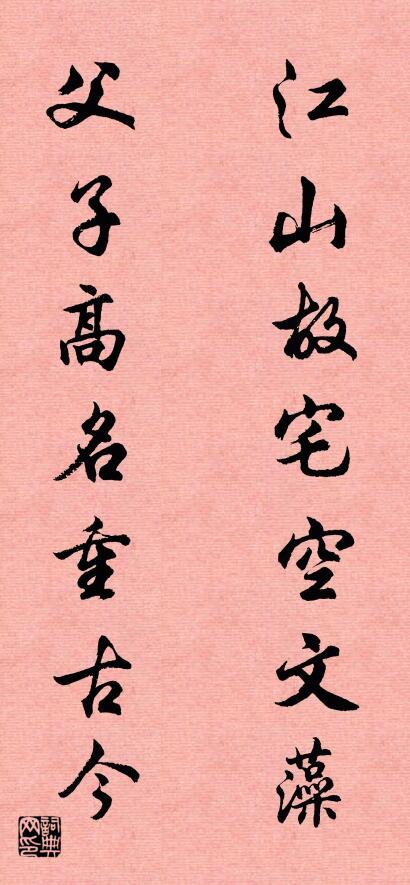 江山故宅空文藻
父子高名重古今
詞典網印